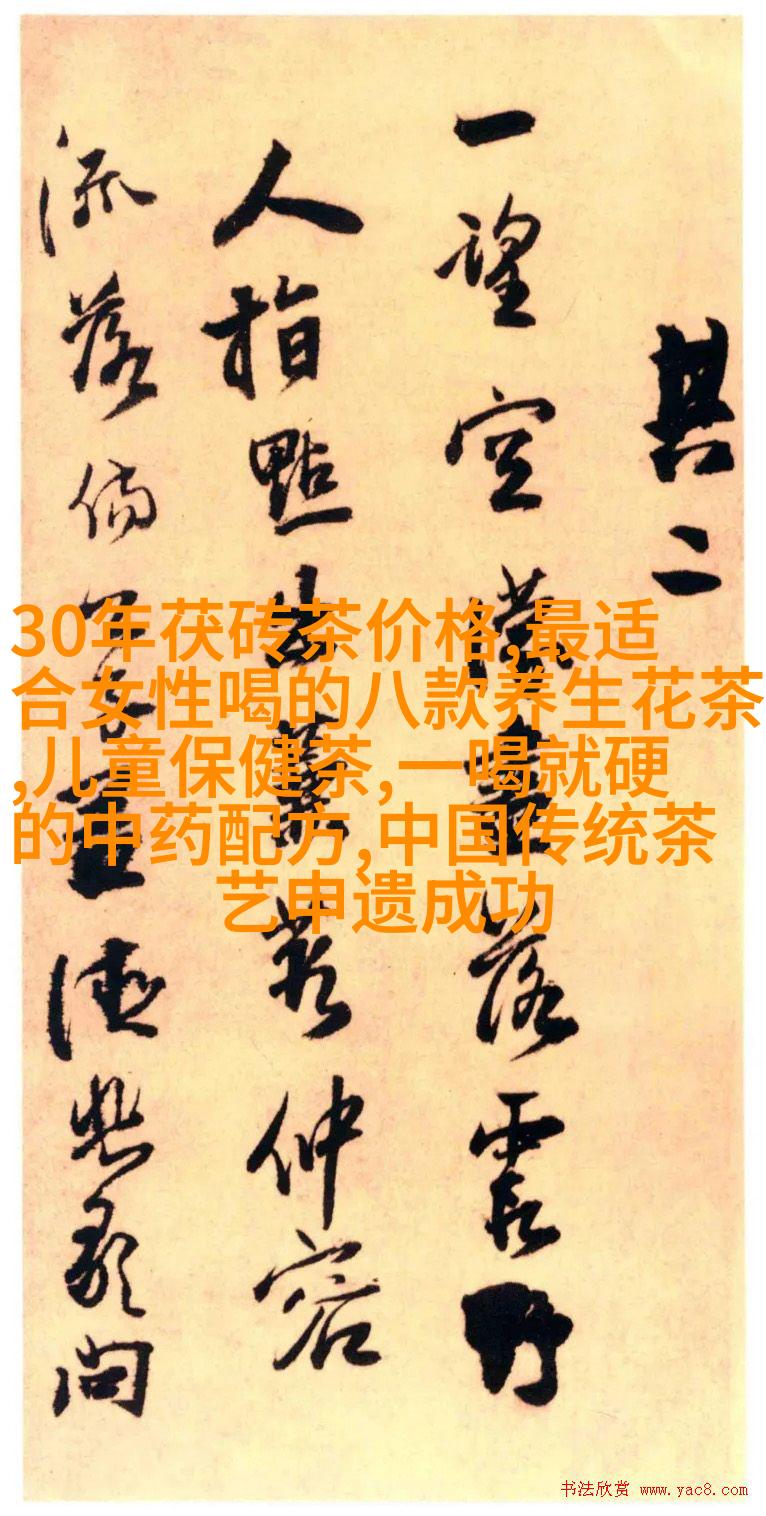 其二
一望空落霞野
人指點仲容
流落問
30年茯砖茶价格,最适
合女性喝的八款养生花茶
,儿童保健茶,一喝就硬
的中药配方,中国传统茶
艺申遗成功
书法欣赏 www.yac8.com